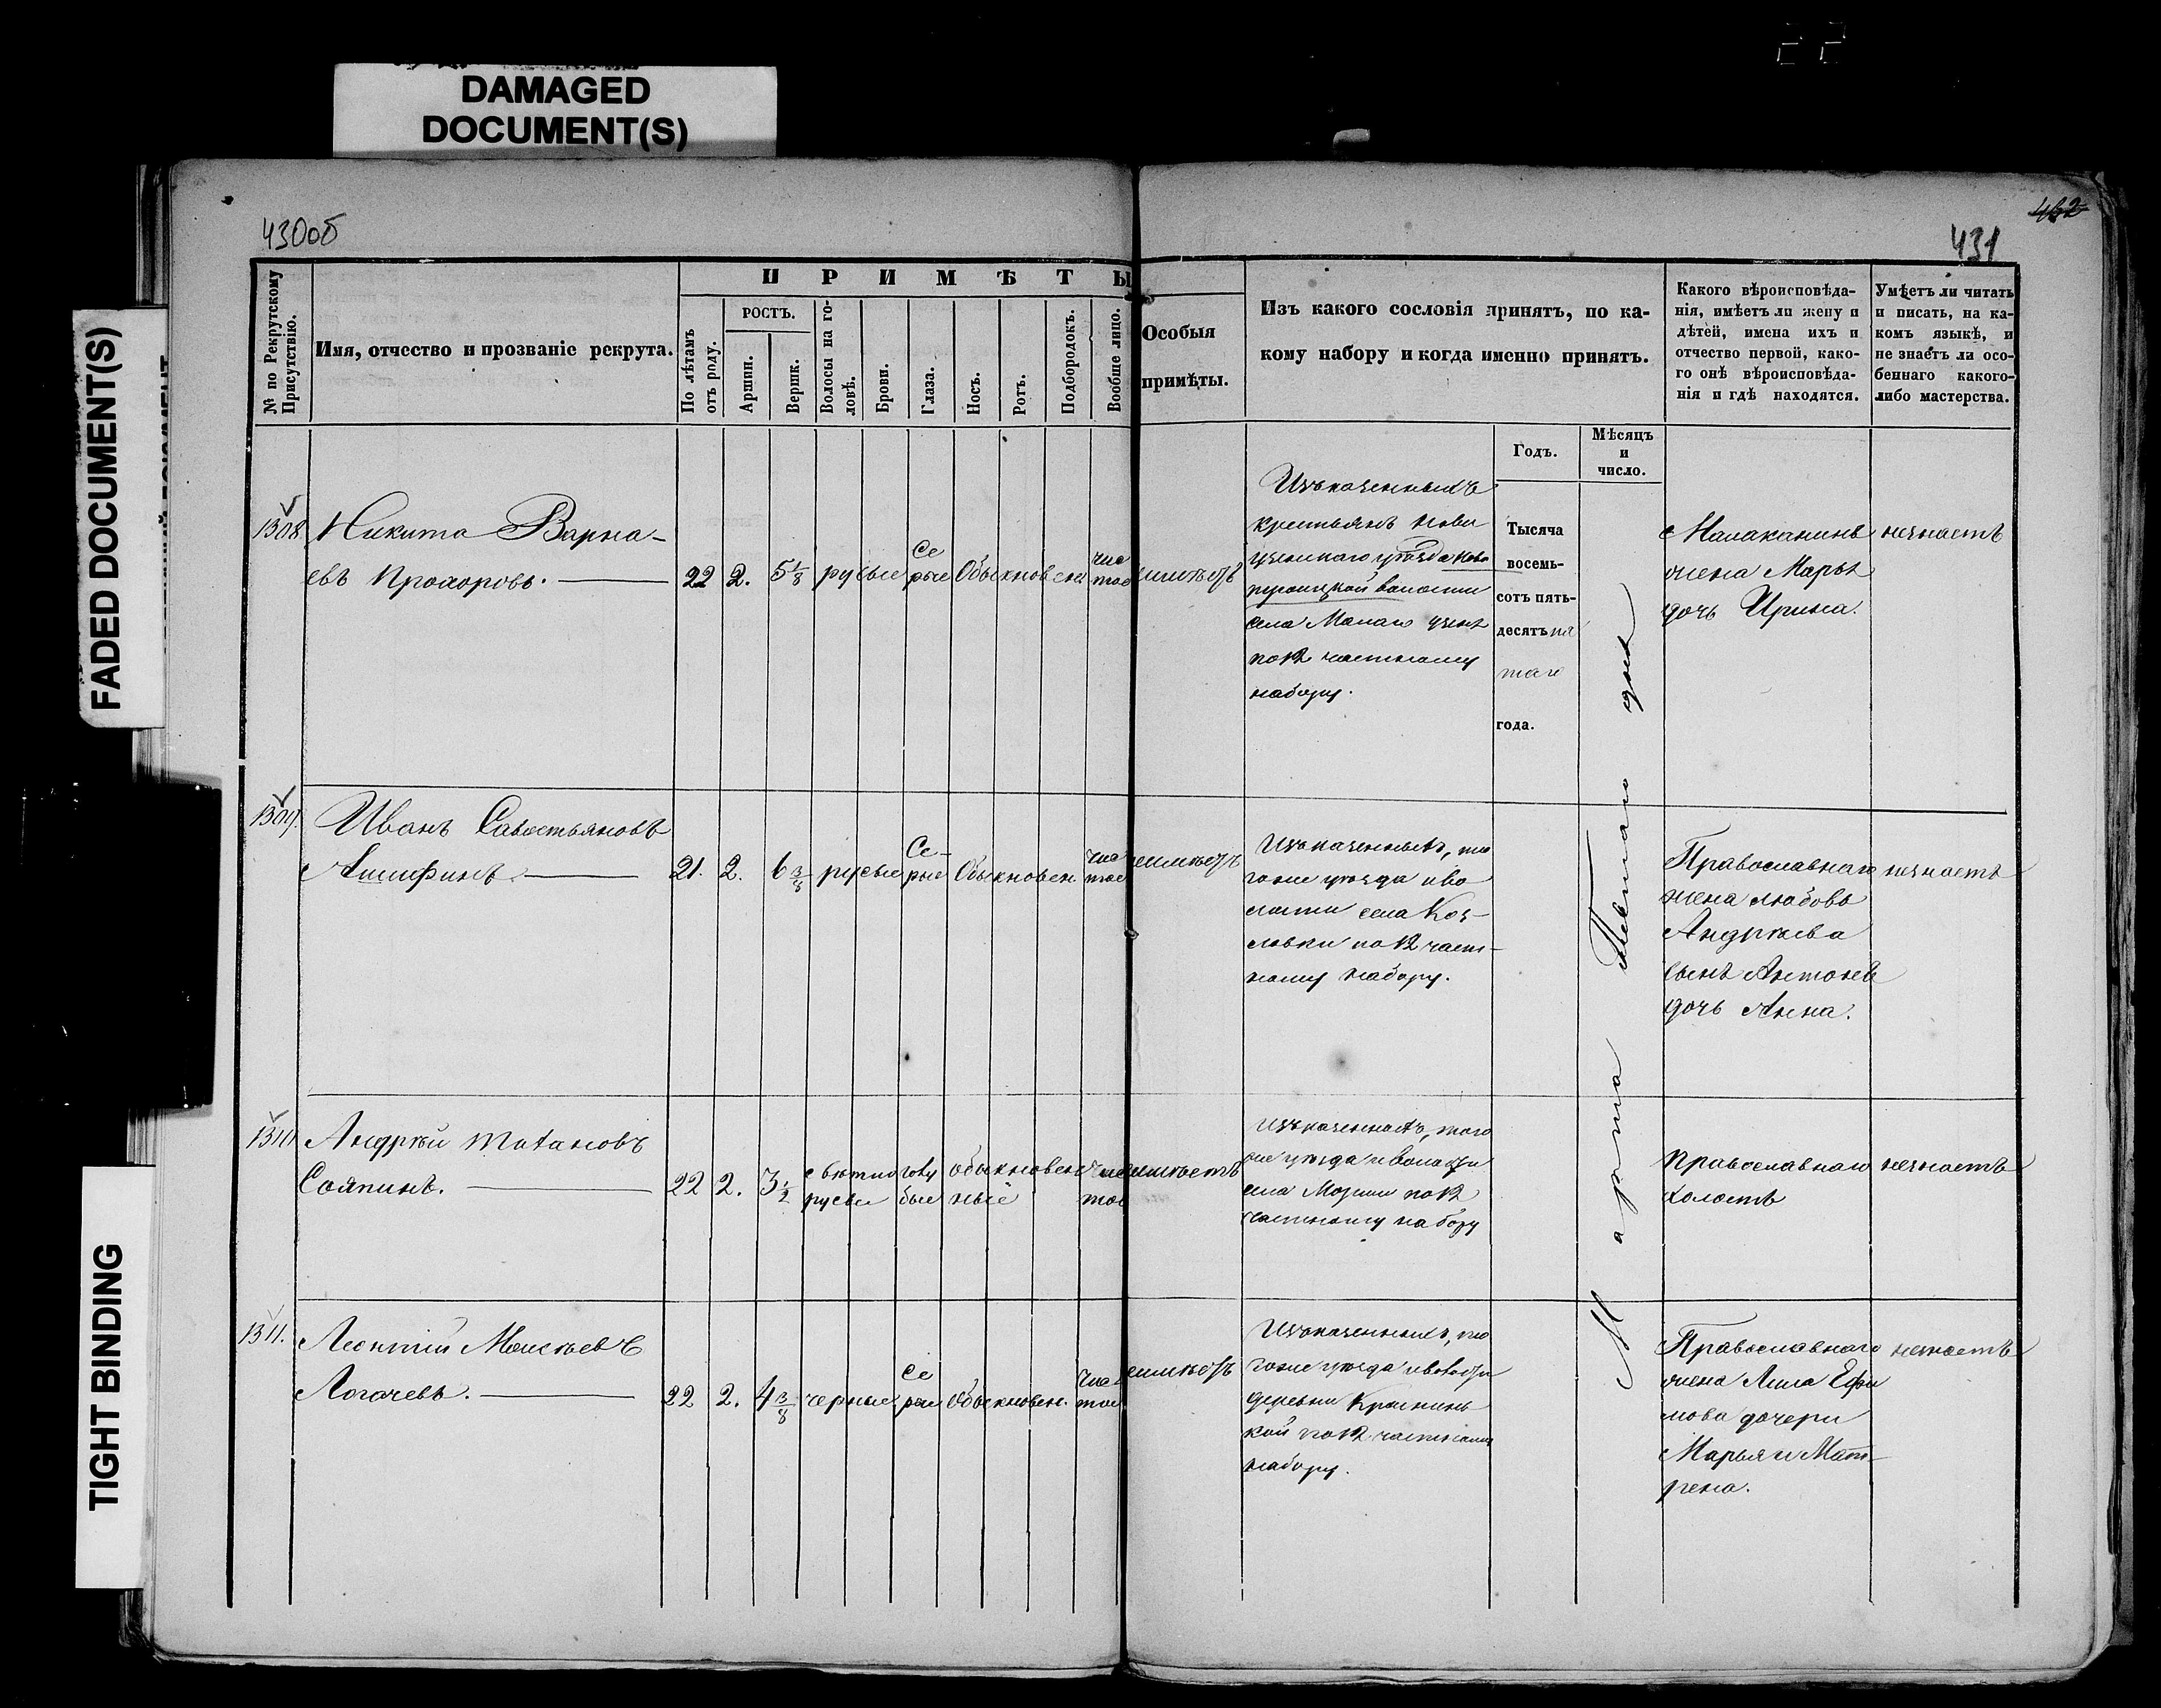 DAMAGED
DOCUMENT(S)
FADED DOCUMENT(S)
TIGHT BINDING
430об
432
431
№ по Рекрутскому Присутствію.
Имя, отчество и прозваніе рекрута.
ПРИМѢТЫ
По лѣтамъ отъ роду.
РОСТЪ.
Аршин.
Вершк.
Волосы на головѣ.
Брови.
Глаза.
Носъ.
Ротъ.
Подбородокъ.
Вообще лицо.
Особыя
примѣты.
Изъ какого сословія принятъ, по ка-
кому набору и когда именно принятъ.
Годъ.
Мѣсяцъ
и
число.
Какого вѣроисповѣда-
нія, имѣетъ ли жену и
дѣтей, имена ихъ и
отчество первой, како-
го онѣ вѣроисповѣда-
нія и гдѣ находятся.
Умѣетъ ли читать
и писать, на ка-
комъ языкѣ, и
не знаетъ ли осо-
беннаго какого-
либо мастерства.
1308
Никита Варна-
евъ Прохоровъ.
22 2. 5 1/8 русые Се
рые Обыкновен чис
тое неимѣетъ
Изъ казенныхъ
крестьянъ Нови
узенскаго уѣзда Ново
волости
села Малаго узеня
по 12 частному
набору.
Тысяча
восемь-
сотъ пять-
десятъ пя
таго
года.
Марта Пятаго дня
Малаканинъ
жена Марья
дочь Ирина.
незнаетъ
1309.
Иванъ Савостьяновъ
21. 2. 6 3/8 русые Се-
рые Обыкновен. чис
тое неимѣетъ
Изъ казенныхъ, то
гоже уѣзда и во
лости села Коз-
ловки по 12 част-
ному набору.
Православнаго
жена Любовь
Андрѣева
сынъ Антонъ
дочь Анна.
незнаетъ
1310.
Андрей
Сояпинъ.
22 2. 3 1/2 свѣтло
русые голу
бые обыкновен
ные чис
тое неимѣетъ
Изъ казенныхъ, того
же уѣзда и волости
села по 12
частному набору
Православнаго
холостъ
незнаетъ
1311.
Леонтій Моисѣевъ
Логачевъ.
22 2. 4 3/8 черные Се
рые Обыкновен. чис
тое неимѣетъ
Изъ казенныхъ, то
гоже уѣзда и волости
деревни
по 12 частному
набору.
Православнаго
жена Ефи
мова дочери
Марья и Мат-
рена.
незнаетъ